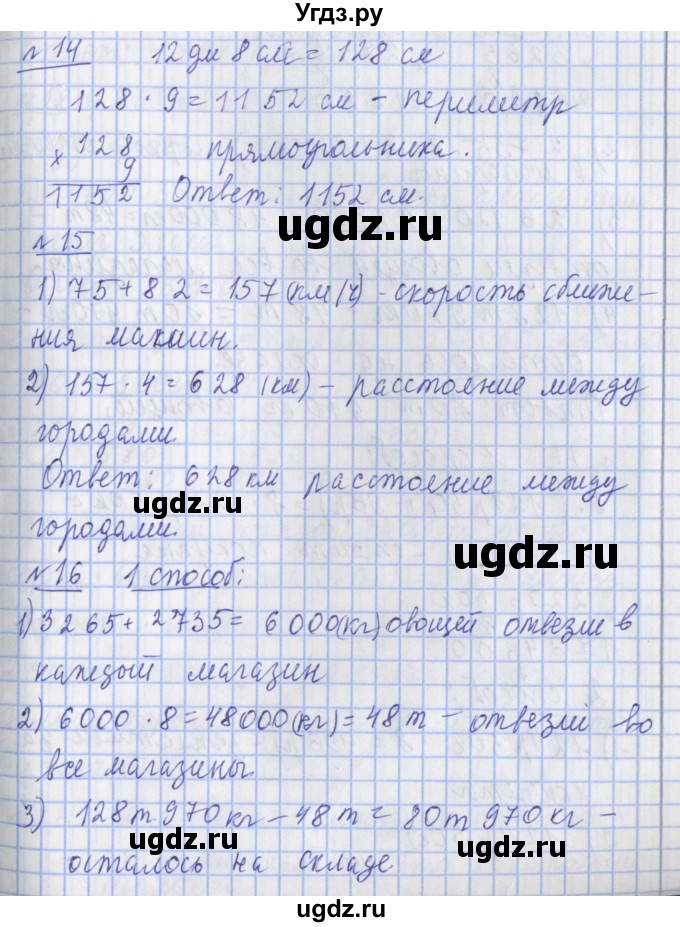 Угдз.ру
№ 14 12 дм 8 см = 128 см
128 · 9 = 1152 см – периметр
х 128 прямоугольника.
9
1152 Ответ: 1152 см.
ugdz.ru
№ 15
1) 75 + 82 = 157 (км/ч) - скорость сближе-
ния машин.
2) 157 · 4 = 628 (км) – расстояние между
городами.
Ответ: 628 км расстояние между
ugdz.ru
городами.
ugdz.ru
№ 16 1 способ:
1) 3265 + 2735 = 6000 (кг) овощей отвезли в
каждый магазин
2) 6000 · 8 = 48000 (кг) = 48 т – отвезли во
все магазины.
3) 128 т 970 кг – 48 т = 80 т 970 кг –
ugdz.ru
осталось на складе
ugdz.ru
ugdz.ru